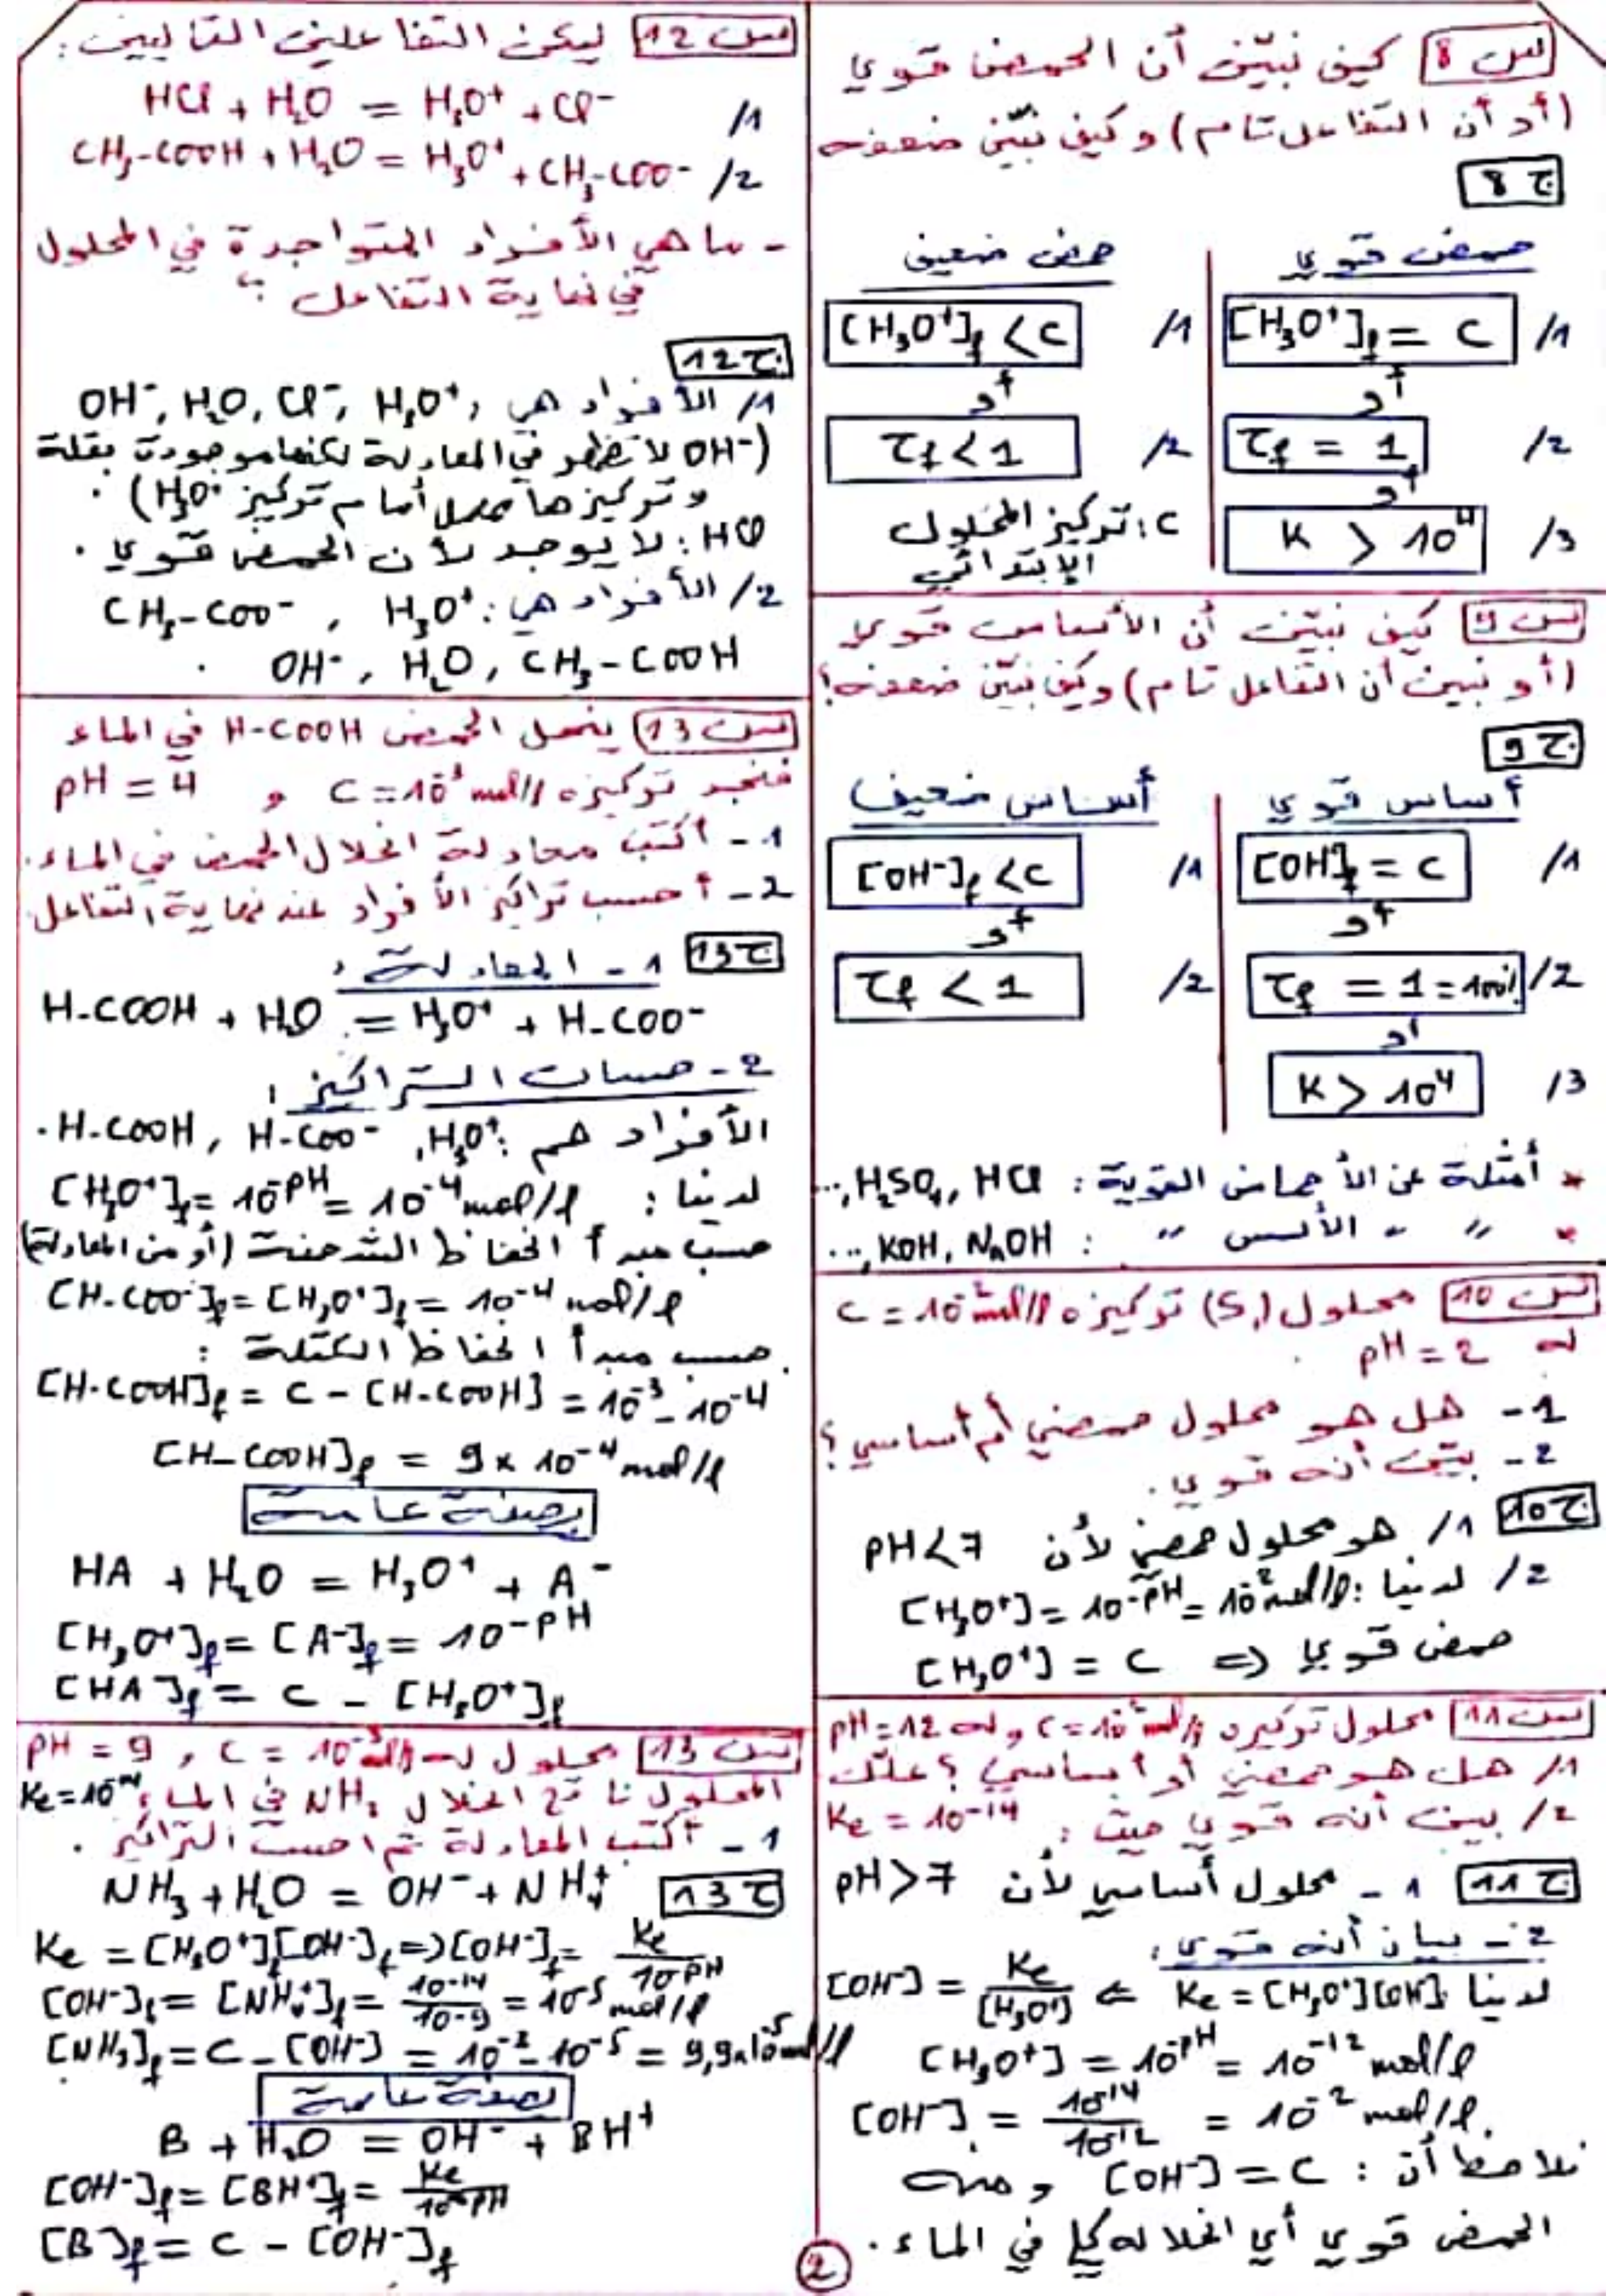 س 8 كيف نبيّن أن الحمض قوي
(أو أن التفاعل تام) وكيف نبيّن ضعفه
ج 8
حمض قوي
1/ [H₃O⁺]f = C
أو
2/ τf = 1
أو
3/ K > 10⁴
حمض ضعيف
1/ [H₃O⁺]f < C
أو
2/ τf < 1
C: تركيز المحلول
الإبتدائي
س 9 كيف نبيّن أن الأساس قوي
(أو نبين أن التفاعل تام) وكيف نبيّن ضعفه؟
ج 9
أساس قوي
1/ [OH⁻]f = C
أو
2/ τf = 1 = 100%
أو
3/ K > 10⁴
أساس ضعيف
1/ [OH⁻]f < C
أو
2/ τf < 1
* أمثلة عن الأحماض القوية : HCl ,H₂SO₄,...
* " " الأسس " : NaOH ,KOH,...
س 10 محلول (S₁) تركيزه C = 10⁻² mol/l
له pH = 2
1- هل هو محلول حمضي أم أساسي؟
2- بيّن أنه قوي.
ج 10 1/ هو محلول حمضي لأن pH < 7
2/ لدينا : [H₃O⁺] = 10⁻ᵖᴴ = 10⁻² mol/l
حمض قوي ⇐ [H₃O⁺] = C
س 11 محلول تركيزه C = 10⁻² mol/l وله pH = 12
1/ هل هو حمضي أو أساسي؟ علّل
2/ بين أنه قوي حيث : Ke = 10⁻¹⁴
ج 11 1- محلول أساسي لأن pH > 7
2- بيان أنه قوي :
لدينا Ke = [H₃O⁺][OH⁻] ⇐ [OH⁻] = Ke/[H₃O⁺]
[H₃O⁺] = 10⁻ᵖᴴ = 10⁻¹² mol/l
[OH⁻] = 10⁻¹⁴/10⁻¹² = 10⁻² mol/l.
نلاحظ أن : [OH⁻] = C ومنه
الحمض قوي أي انحلاله كلي في الماء.
س 12 ليكن التفاعلين التاليين :
1/ HCl + H₂O = H₃O⁺ + Cl⁻
2/ CH₃-COOH + H₂O = H₃O⁺ + CH₃-COO⁻
- ما هي الأفراد المتواجدة في المحلول
في نهاية التفاعل ؟
ج 12
1/ الأفراد هي : H₃O⁺ ,Cl⁻ ,H₂O ,OH⁻
(OH⁻ لا تظهر في المعادلة لكنها موجودة بقلة
وتركيزها مهمل أمام تركيز H₃O⁺).
HCl : لا يوجد لأن الحمض قوي.
2/ الأفراد هي : H₃O⁺ , CH₃-COO⁻
CH₃-COOH , H₂O , OH⁻ .
س 13 ينحل الحمض H-COOH في الماء
فنجد تركيزه C = 10⁻³ mol/l و pH = 4
1- أكتب معادلة انحلال الحمض في الماء.
2- أحسب تراكيز الأفراد عند نهاية التفاعل.
ج 13 1- المعادلة :
H-COOH + H₂O = H₃O⁺ + H-COO⁻
2- حساب التراكيز :
الأفراد هم : H₃O⁺ , H-COO⁻ , H-COOH.
لدينا : [H₃O⁺]f = 10⁻ᵖᴴ = 10⁻⁴ mol/l
حسب مبدأ انحفاظ الشحنة (أو من المعادلة)
[H-COO⁻]f = [H₃O⁺]f = 10⁻⁴ mol/l
حسب مبدأ انحفاظ الكتلة :
[H-COOH]f = C - [H-COOH] = 10⁻³ - 10⁻⁴
[H-COOH]f = 9 x 10⁻⁴ mol/l
بصفة عامة
HA + H₂O = H₃O⁺ + A⁻
[H₃O⁺]f = [A⁻]f = 10⁻ᵖᴴ
[HA]f = C - [H₃O⁺]f
س 13 محلول له C = 10⁻² mol/l , pH = 9
المحلول ناتج انحلال NH₃ في الماء, Ke = 10⁻¹⁴
1- أكتب المعادلة ثم احسب التراكيز.
ج 13 NH₃ + H₂O = OH⁻ + NH₄⁺
Ke = [H₃O⁺]f[OH⁻]f => [OH⁻]f = Ke/10⁻ᵖᴴ
[OH⁻]f = [NH₄⁺]f = 10⁻¹⁴/10⁻⁹ = 10⁻⁵ mol/l
[NH₃]f = C - [OH⁻] = 10⁻² - 10⁻⁵ = 9,9x10⁻⁵ mol/l
بصفة عامة
B + H₂O = OH⁻ + BH⁺
[OH⁻]f = [BH⁺]f = Ke/10⁻ᵖᴴ
[B]f = C - [OH⁻]f
2